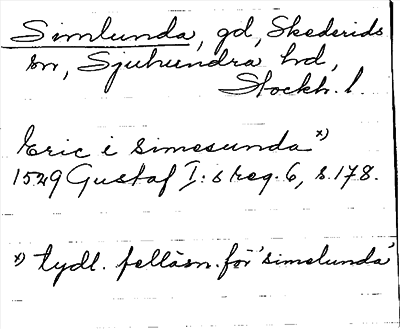 Simlunda, gd, Skederids
sn, Sjuhundra hd,
Stockh. l.
Eric i Simesunda x)
1529 Gustaf I:s reg. 6, s. 178.
x) tydl. felläsn. för 'simelunda'